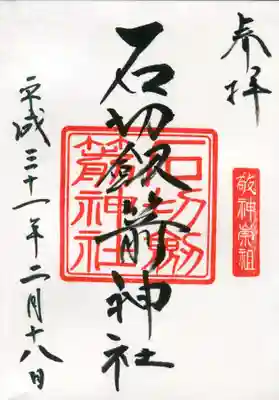 奉拝
敬神崇祖
石切劔箭神社
石切劔箭神社
平成三十一年二月十八日